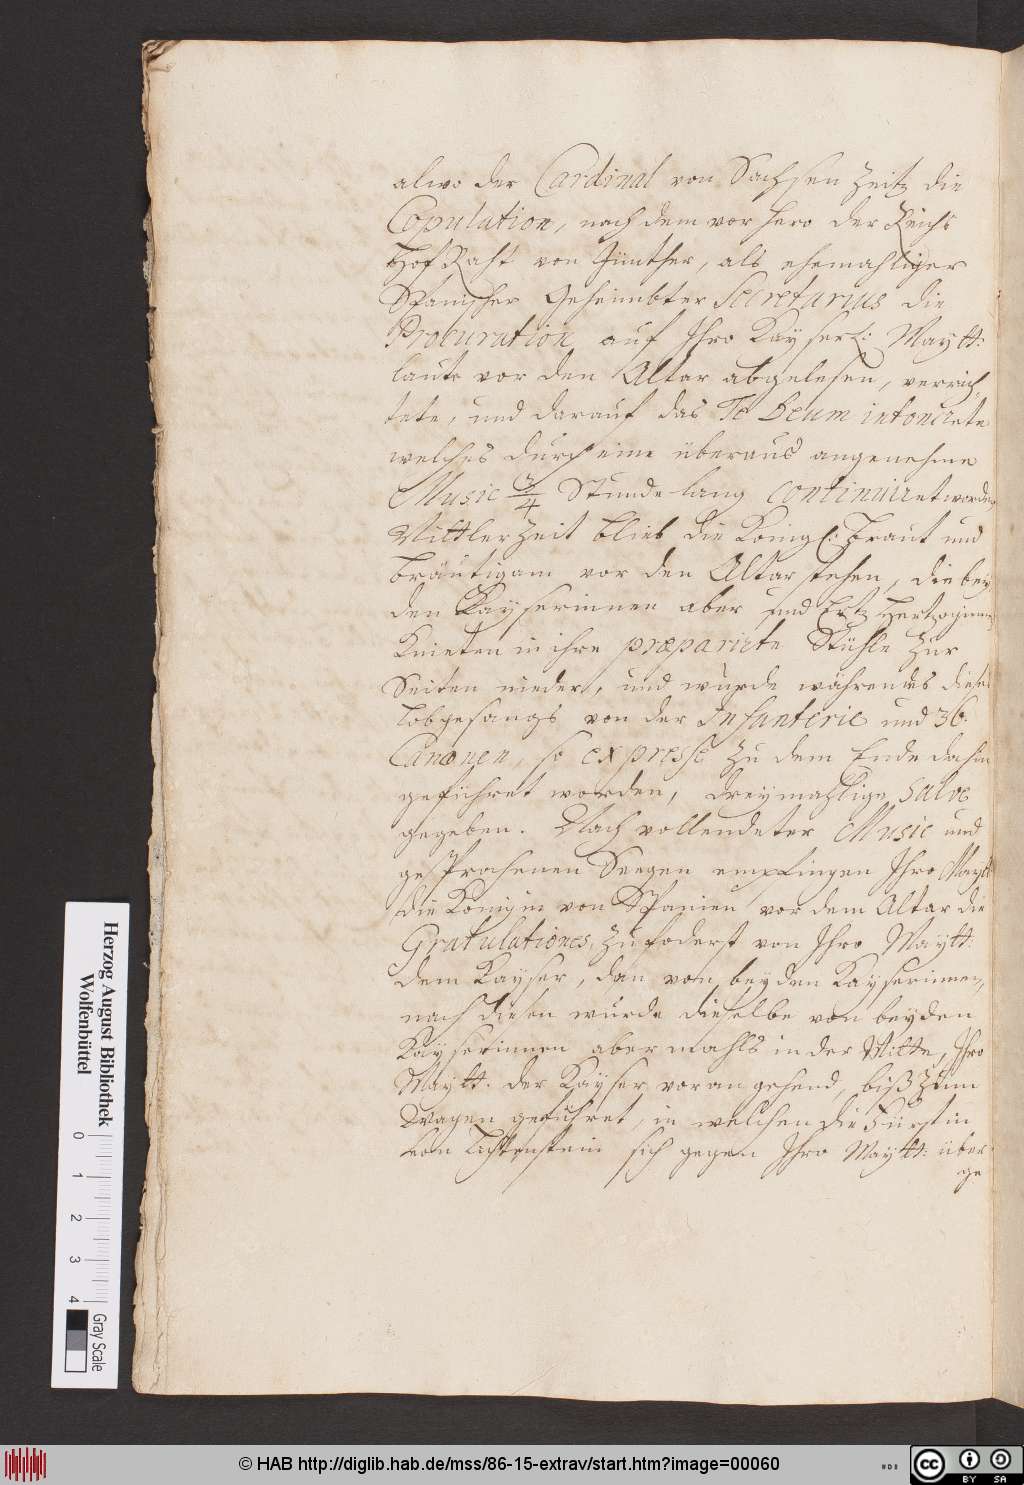 alwo der Cardinal von Sachsen Zeitz die
Copulation, nach dem vorhero der Reichs
Hof Raht von Günther, als ehemahliger
Spanischer Geheimbter Secretarius die
Procuration auf Ihro Kayserl: Maytt:
laute vor den Altar abgelesen, verrich,
tete, und darauf das Te Deum intonirete
welches durch eine überaus angenehme
Music 3/4 Stunde lang continuiret worden
Mittler Zeit blieb die Königl: Braut und
Bräutigam vor den Altar stehen, die bey
den Kayserinnen aber und Ertz Hertzoginnen
Knieten in ihre præparirte Stühle zur
Seiten nieder, und wurde währendes dieses
Lobgesangs von der Infanterie und 36.
Canonen, so expresse zu dem Ende dahin
geführet worden, dreymahlige Salve
gegeben. Nach vollendeter Music und
gesprochenen Seegen empfingen Ihro Maytt
die Königin von Spanien vor dem Altar die
Gratulationes, zu foderst von Ihro Maytt:
dem Kayser, dan von beyden Kayserinnen,
nach diesen wurde dieselbe von beyden
Kayserinnen abermahls in der Mitte, Ihro
Maytt. der Kayser voran gehend, biß zum
Wagen geführet, in welchen die Fürstin
von Lichtenstein sich gegen Ihro Maytt: über
ge
Herzog August Bibliothek
Wolfenbüttel
0 1 2 3 4
Gray Scale
© HAB http://diglib.hab.de/mss/86-15-extrav/start.htm?image=00060
cc BY SA